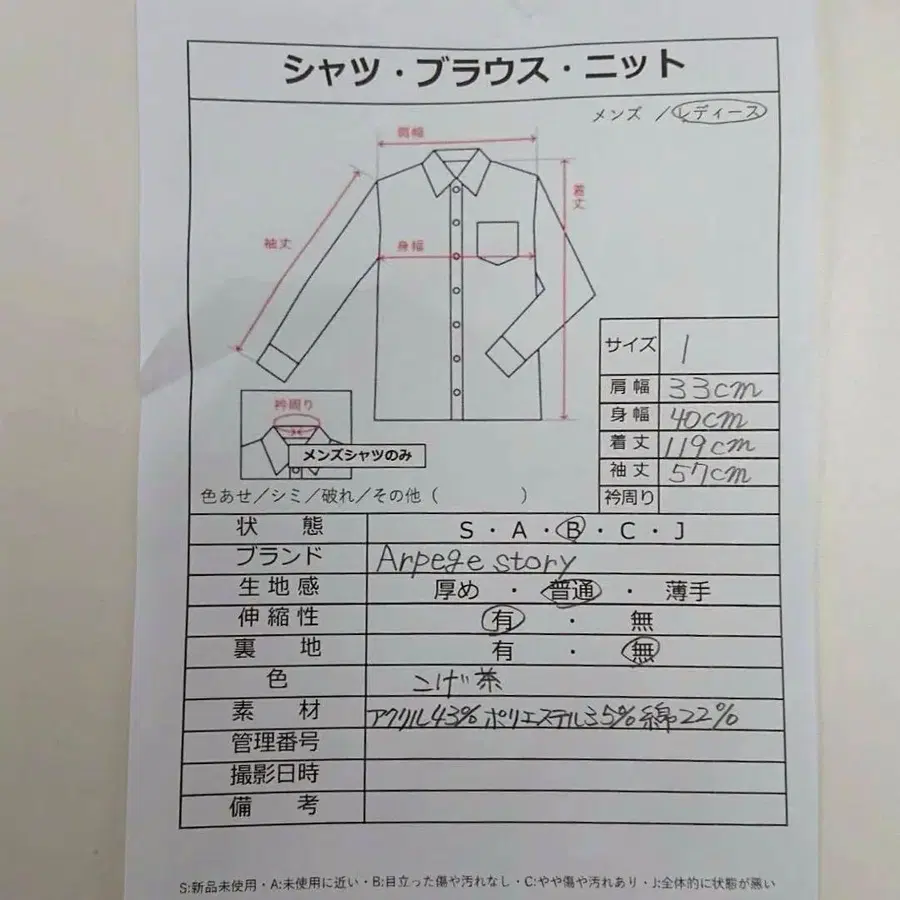 シャツ・ブラウス・ニット
メンズ / レディース
肩幅
着丈
袖丈
身幅
サイズ 1
肩幅 33cm
身幅 40cm
着丈 119cm
袖丈 57cm
衿周り
衿周り
メンズシャツのみ
色あせ／シミ／破れ／その他（ ）
状態 S・A・B・C・J
ブランド Arpege story
生地感 厚め・普通・薄手
伸縮性 有・無
裏地 有・無
色 こげ茶
素材 アクリル43% ポリエステル35% 綿22%
管理番号
撮影日時
備考
S:新品未使用・A:未使用に近い・B:目立った傷や汚れなし・C:やや傷や汚れあり・J:全体的に状態が悪い